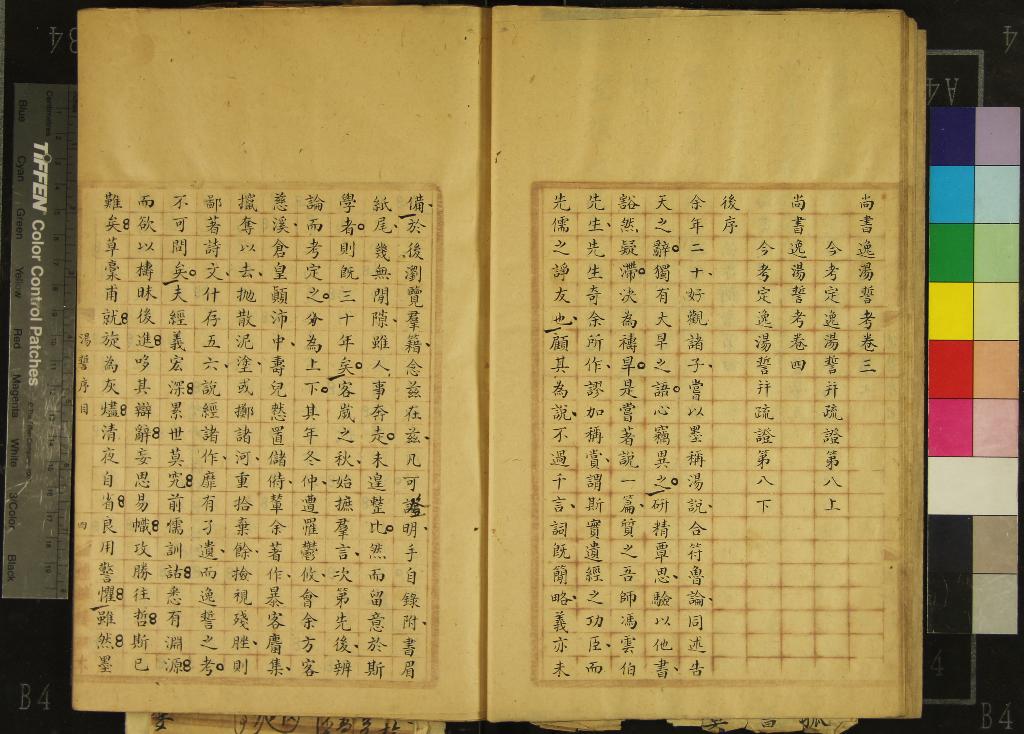 尚書逸湯誓考卷三
今考定逸湯誓并疏證第八上
尚書逸湯誓考卷四
今考定逸湯誓并疏證第八下
後序
余年二十好觀諸子嘗以墨稱湯說合符魯論同述告
天之辭獨有大旱之語心竊異之研精覃思驗以他書
豁然疑滯決為禱旱是嘗著說一篇質之吾師馮雲伯
先生先生奇余所作謬加稱賞謂斯實遺經之功臣而
先儒之諍友也顧其為說不過千言詞既簡略義亦未
備於後瀏覽羣籍念茲在茲凡可證明手自錄附書眉
紙尾幾無閒隙雖人事奔走未遑整比然而留意於斯
學者則既三十年矣客歲之秋始摭羣言次第先後辨
論而考定之分為上下其年冬仲遭罹鬱攸會余方客
慈溪倉皇顛沛中壽兒憗置儲偫輩余著作暴客麕集
攫奪以去拋散泥塗或擲諸河重拾棄餘撿視殘脞則
鄙著詩文什存五六說經諸作靡有孑遺而逸誓之考
不可問矣夫經義宏深累世莫究前儒訓詁悉有淵源
而欲以檮昧後進哆其辯辭妄思易幟攻勝往哲斯已
難矣草稾甫就旋為灰燼清夜自省良用警懼雖然墨
湯誓序目
四
Tiffen Color Control Patches
Centimetres
Blue
Cyan
Green
Yellow
Red
Magenta
White
3/Color
Black
B4
B4
A4
4